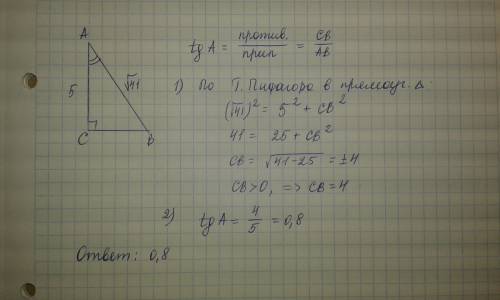 A
5
√41
C
B
tg A = против. / прил = CB / AB
1) По Т. Пифагора в прямоуг. Δ:
(√41)² = 5² + CB²
41 = 25 + CB²
CB = √41-25 = ±4
CB > 0, => CB = 4
2) tg A = 4/5 = 0,8
Ответ: 0,8